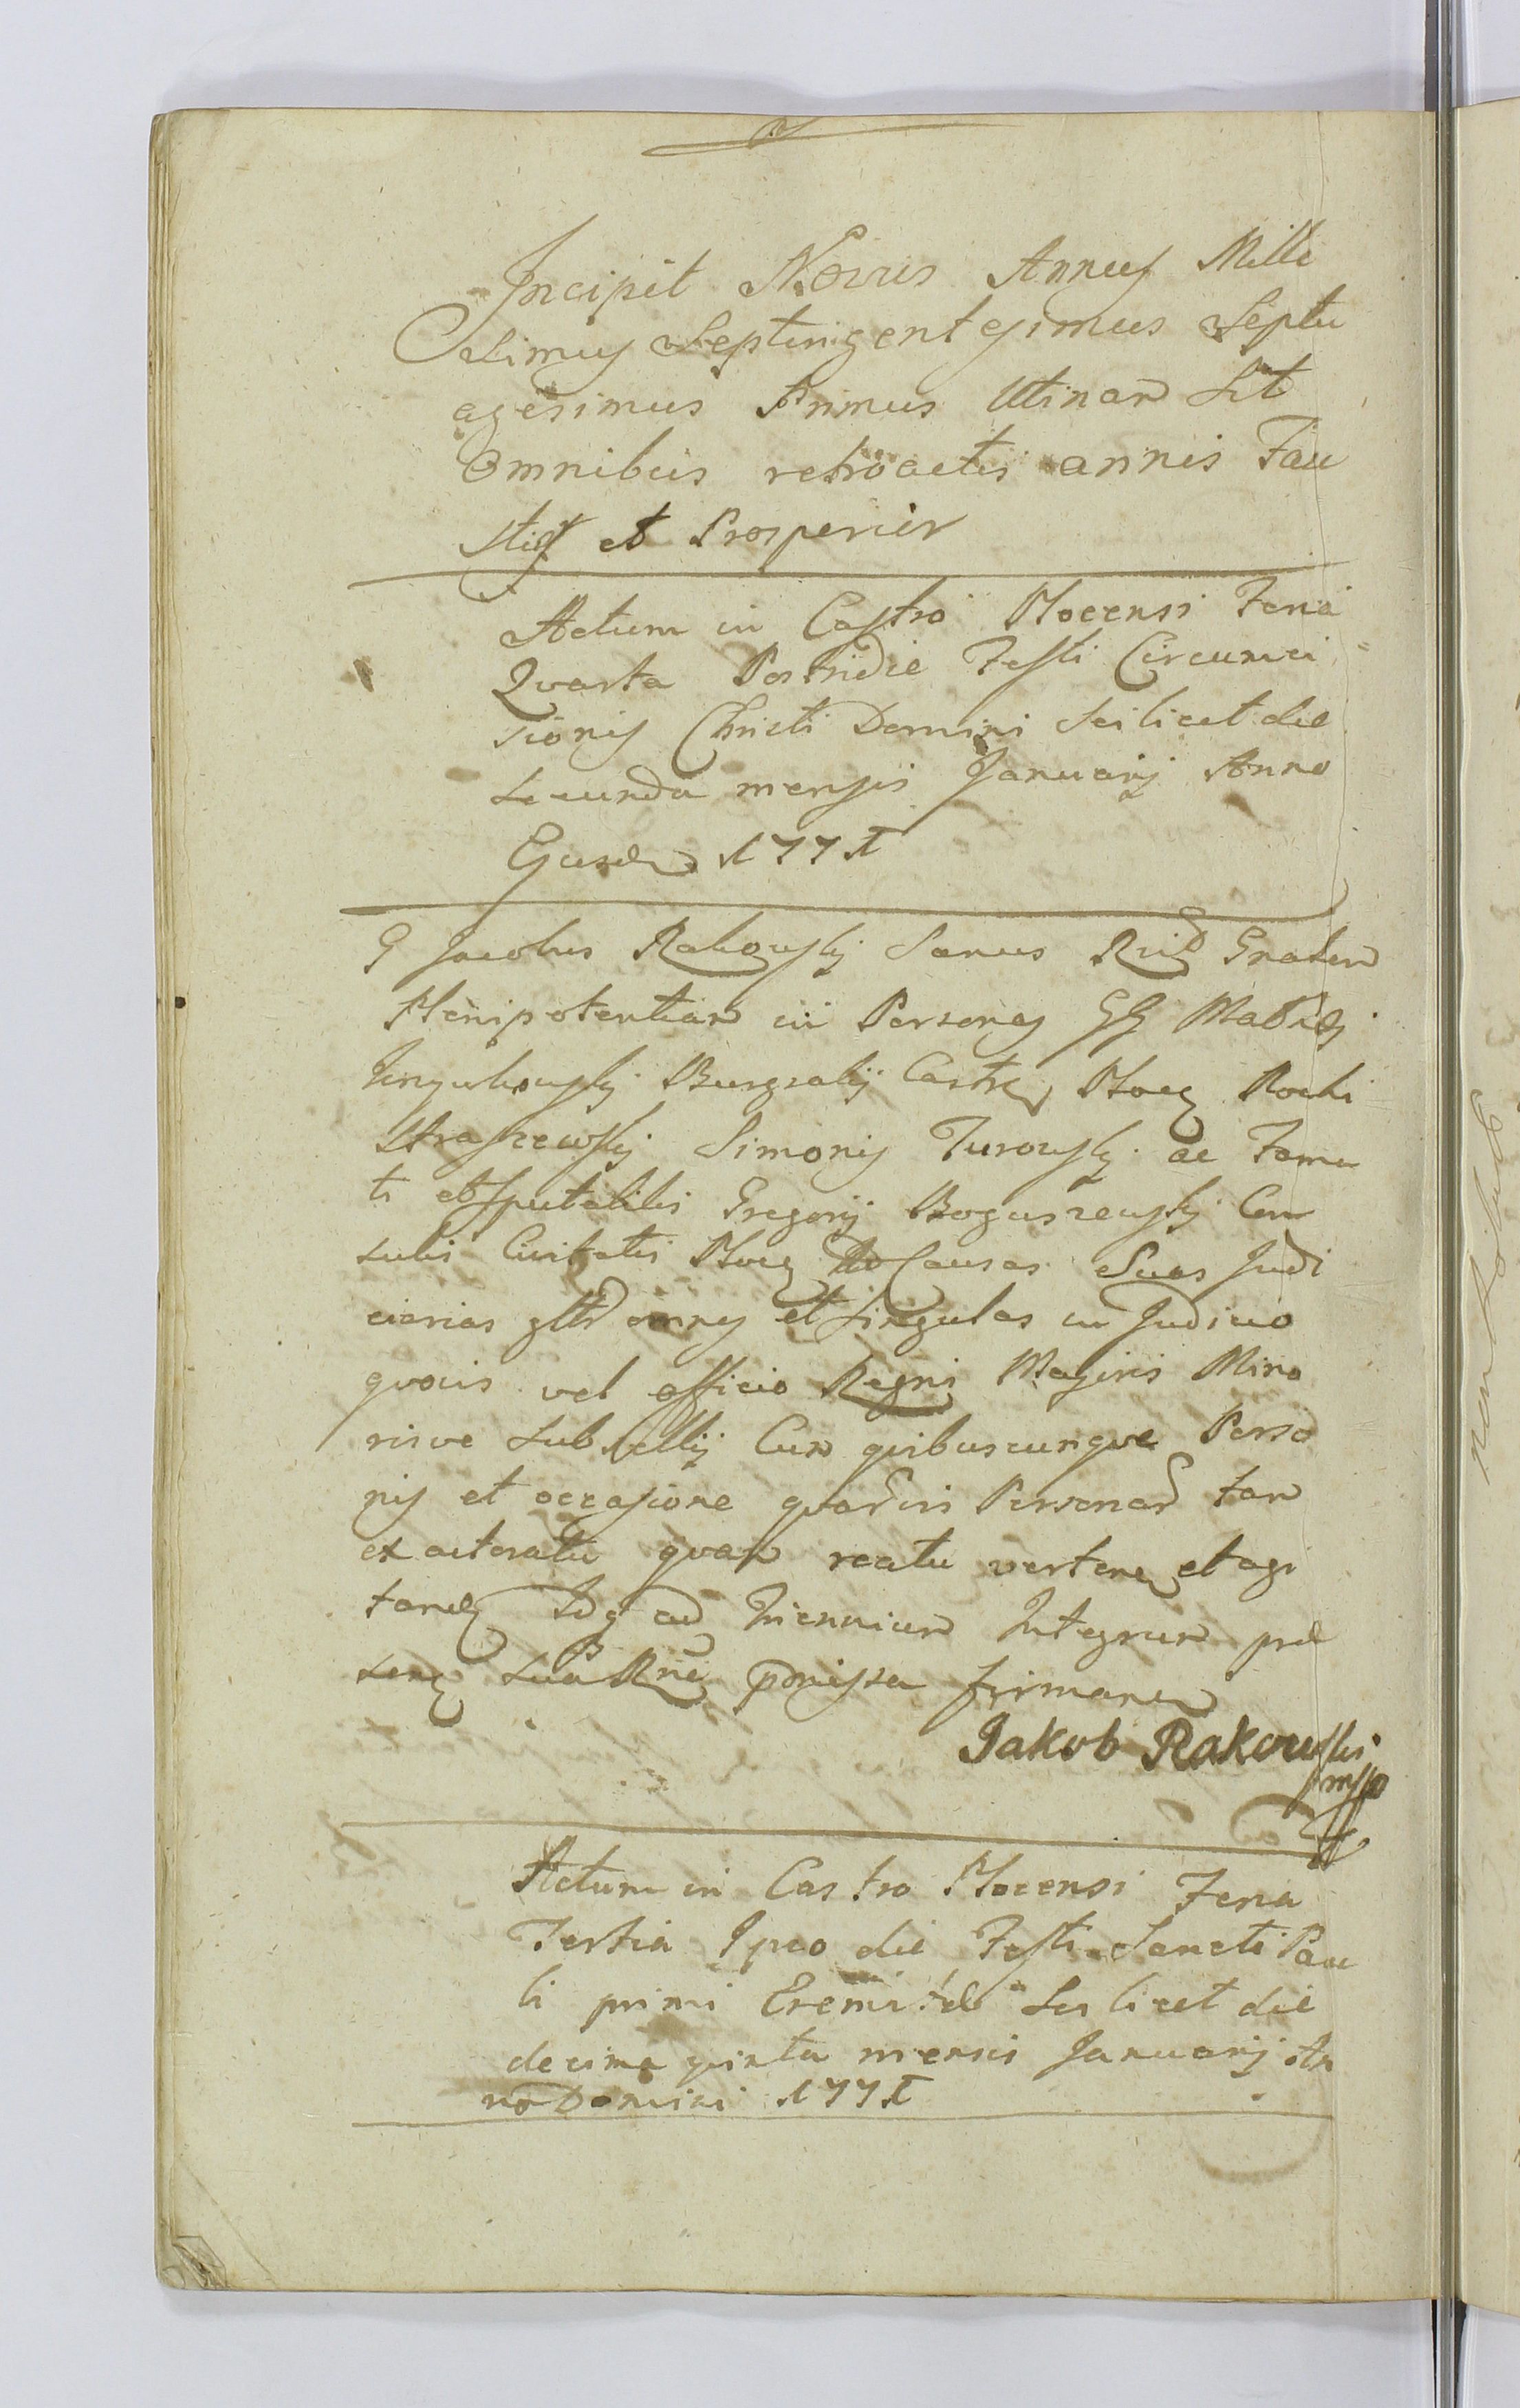 Incipit Novus Annus Mille
simus Septingentesimus Septu
agesimus Primus Utinam Sit
Omnibus retroactis annis Fau
stior et Prosperior
Actum in Castro Plocensi Feria
Qvarta Postridie Festi Circumci
sionis Christi Domini Scilicet die
Secunda mensis Januarij Anno
Ejusdem 1771
G Jacobus Rakowskj Sanus
Plenipotentiam in Personas GG
Burgrabij Castri Plocen Rochi
Straszewskj Simonis Turowskj ac Fama
ti et Spectabilis Gregorij Boguszewskj Con
sulis Civitatis Plocen Ad Causas Suas Judi
ciarias omnes et singulas in Judicio
qvovis vel officio Regni Majoris Mino
risve Subsellij Cum qvibuscunqve Perso
nis et occasione Personarum tam
ex actoratu qvam reatu verten et agi
tanden Idq ad Triennium Integrum præ
sens sua praemissa firmanen
Jakob Rakowski
mpp
Actum in Castro Plocensi Feria
Tertia Ipso die Festi Sancti Pau
li primi Eremitæ Scilicet die
decima qvinta mensis Januarij An
no Domini 1771